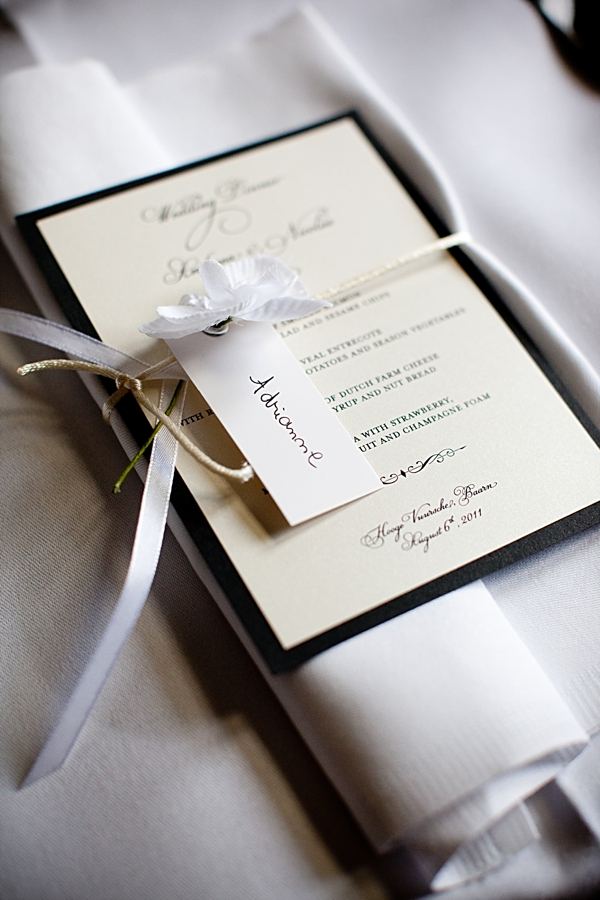 Wedding Dinner
LAD AND SESAME CHIPS
VEAL ENTRECOTE
OTATOES AND SEASON VEGETABLES
OF DUTCH FARM CHEESE
WITH
YRUP AND NUT BREAD
A WITH STRAWBERRY,
UIT AND CHAMPAGNE FOAM
Adrianne
Hooge Vuursche, Baarn
August 6th, 2011